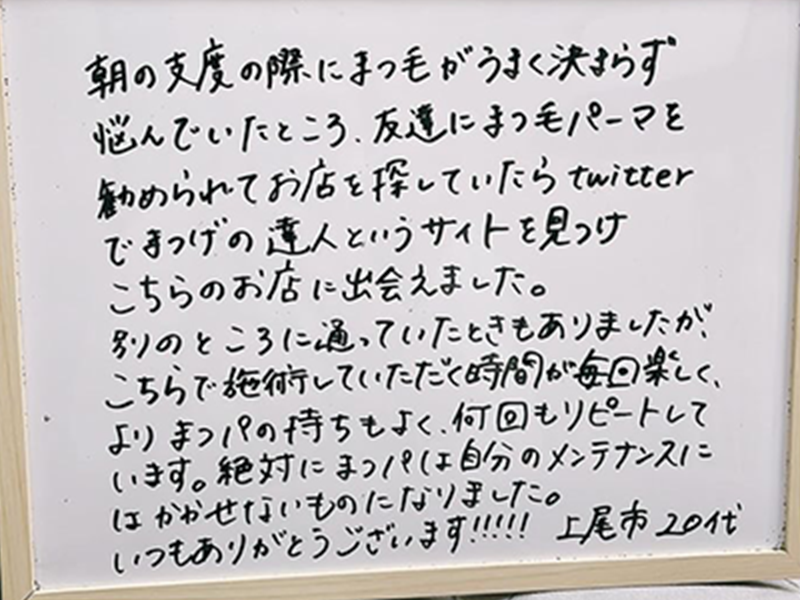 朝の支度の際にまつ毛がうまく決まらず
悩んでいたところ、友達にまつ毛パーマを
勧められてお店を探していたらtwitter
でまつげの達人というサイトを見つけ
こちらのお店に出会えました。
別のところに通っていたときもありましたが、
こちらで施術していただく時間が毎回楽しく、
よりまつパの持ちもよく、何回もリピートして
います。絶対にまつパは自分のメンテナンスに
はかかせないものになりました。
いつもありがとうございます!!!!! 上尾市 20代